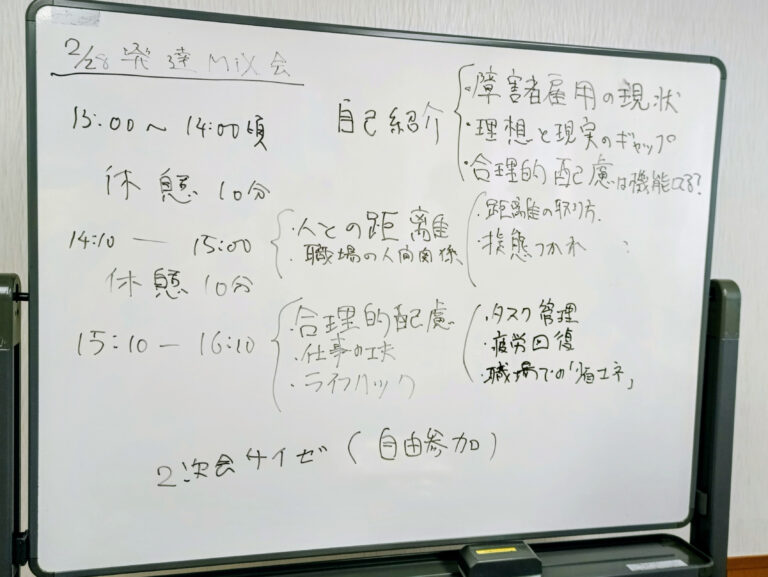 2/28 発達MiX会
13:00〜14:00頃 自己紹介
・障害者雇用の現状
・理想と現実のギャップ
・合理的配慮は機能してる?
休憩10分
14:10 — 15:00
・人との距離
・職場の人間関係
・距離の取り方.
・擬態つかれ
休憩10分
15:10 — 16:10
・合理的配慮
・仕事の工夫
・ライフハック
・タスク管理
・疲労回復
・職場での「省エネ」
2次会サイゼ(自由参加)